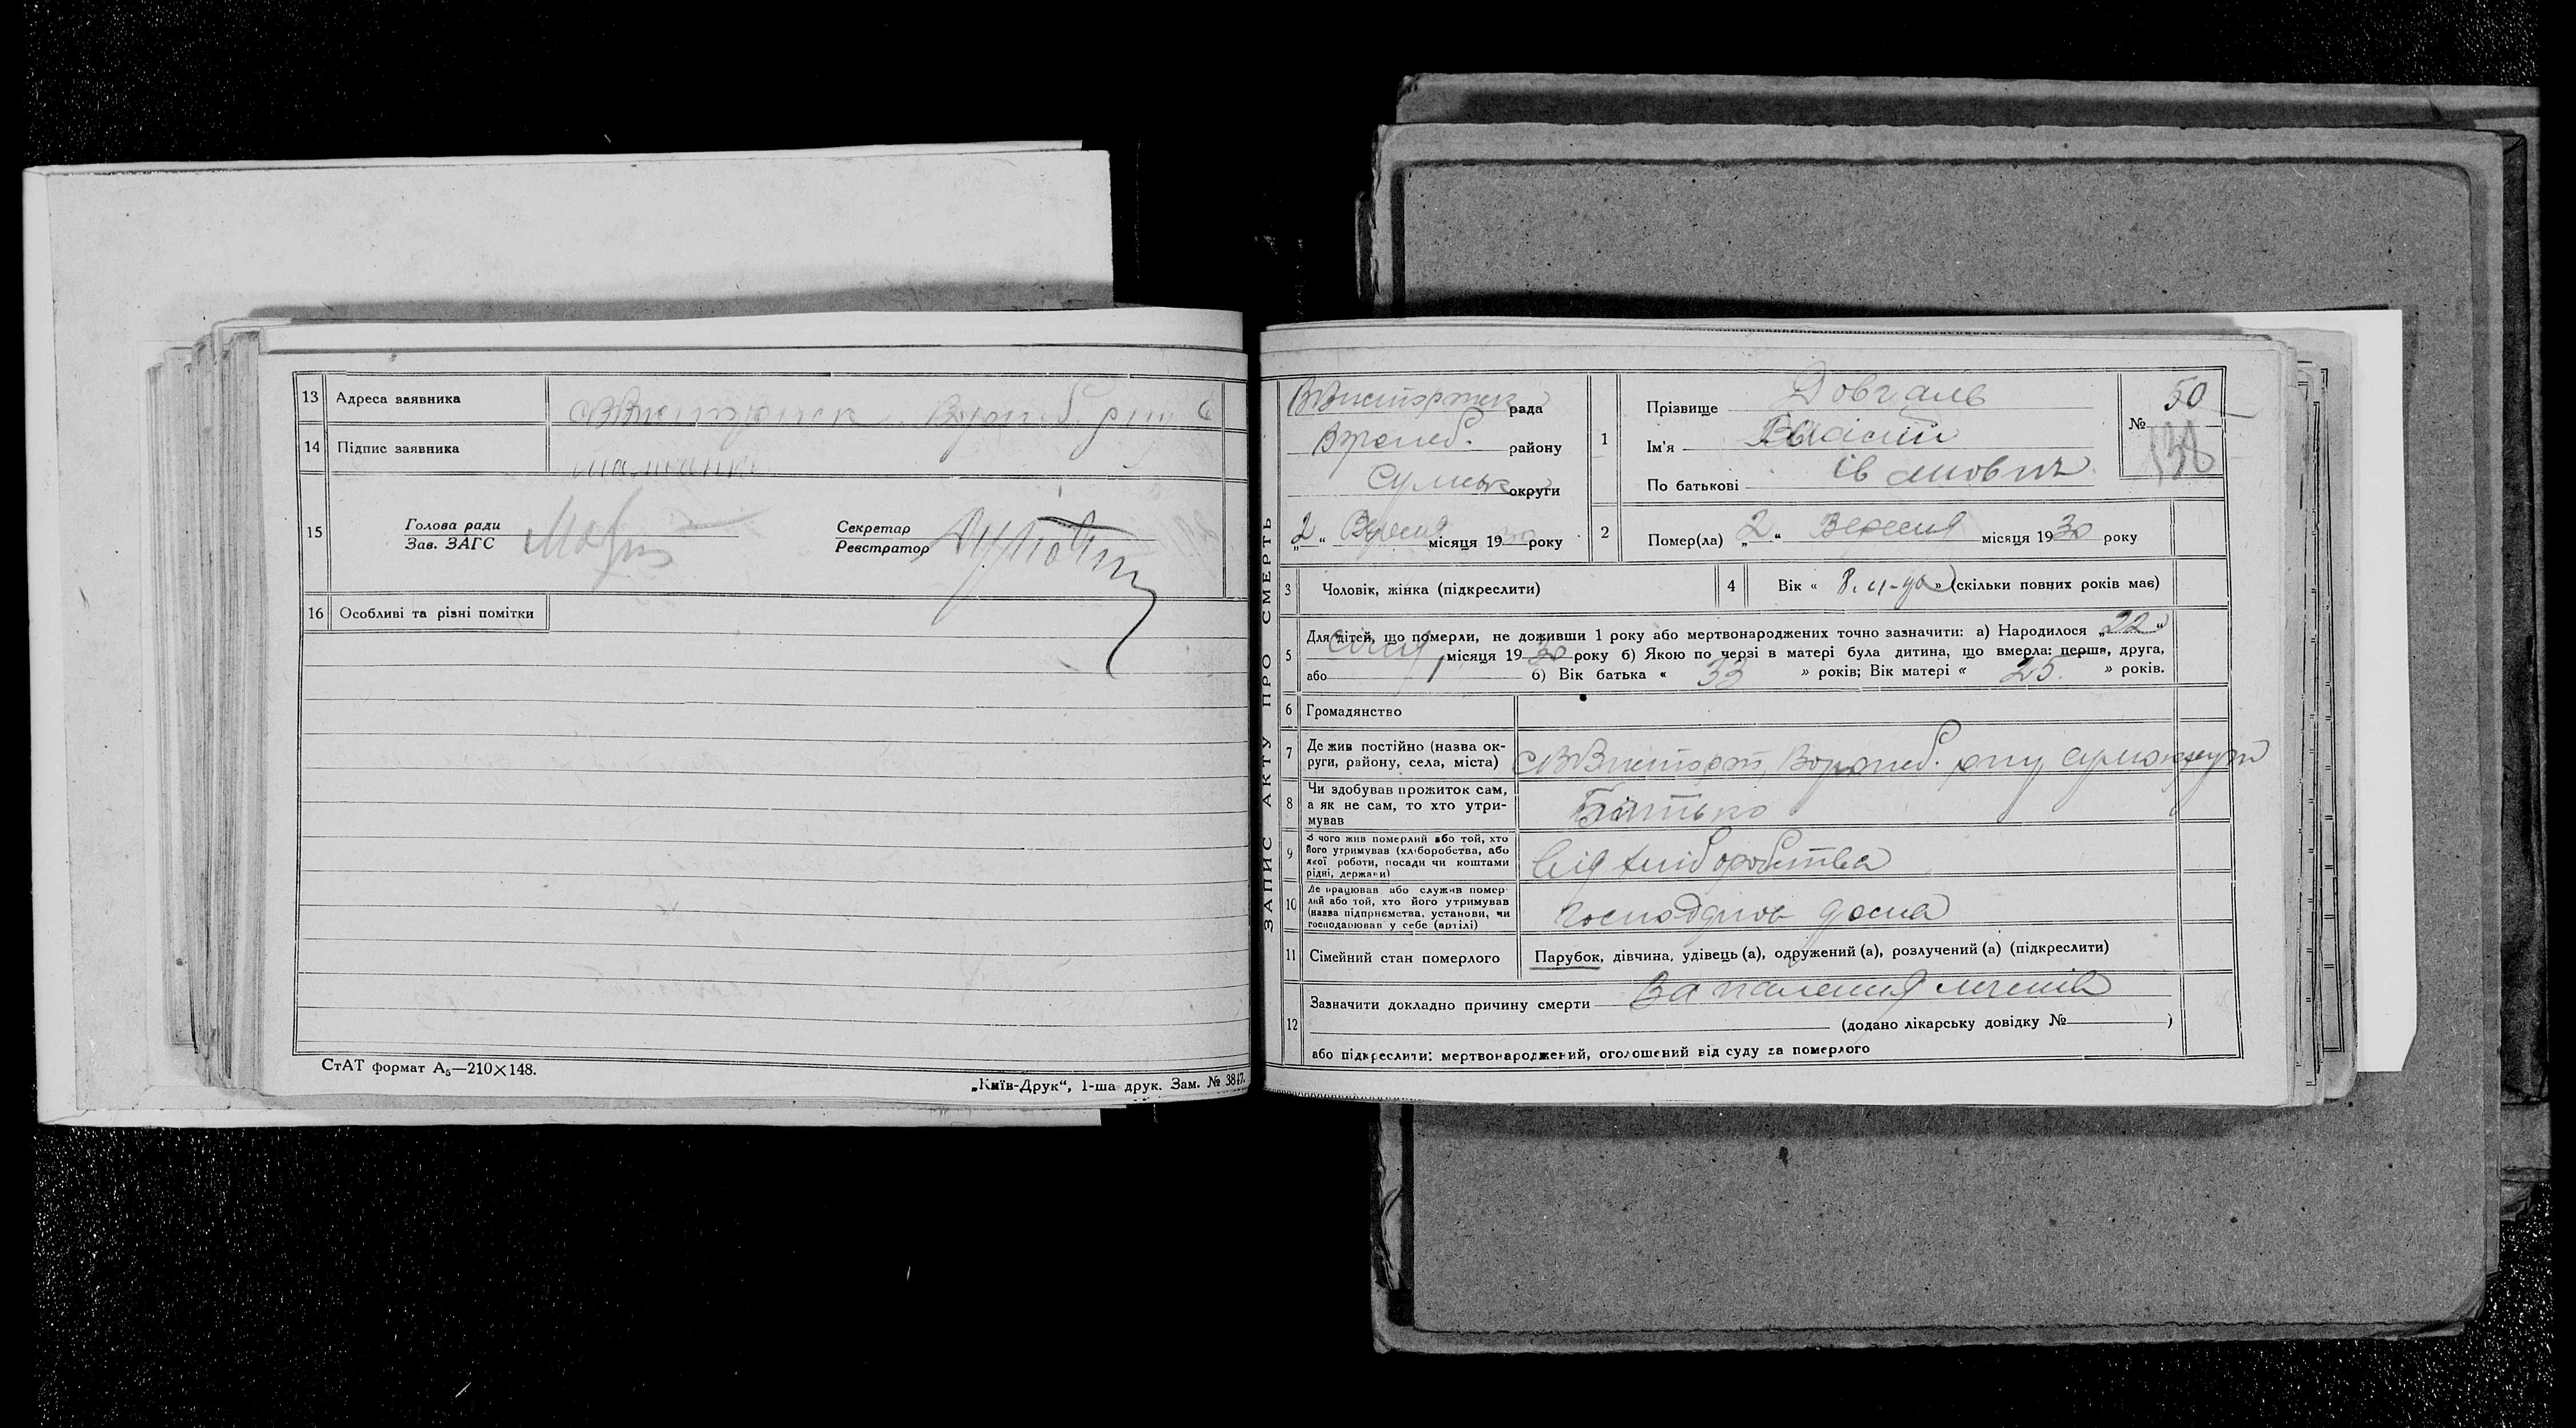 13 Адреса заявника
14 Підпис заявника
15 Голова ради
Зав. ЗАГС
Секретар
Реєстратор
16 Особливі та різні помітки
СтАТ формат А₅—210×148.
„Київ-Друк“, 1-ша друк. Зам. № 3847.
ЗАПИС АКТУ ПРО СМЕРТЬ
рада
району
Сумськ округи
„2“ Вересня місяця 1930 року
1 Прізвище Довгаль
Ім'я Василій
По батькові Івановичь
№ 50
138
2 Помер(ла) „2“ Вересня місяця 1930 року
3 Чоловік, жінка (підкреслити)
4 Вік « 8. » (скільки повних років має)
5 Для дітей, що померли, не доживши 1 року або мертвонароджених точно зазначити: а) Народилося „22“
Січня місяця 1930 року б) Якою по черзі в матері була дитина, що вмерла: перша, друга,
або б) Вік батька « 33 » років; Вік матері « 25. » років.
6 Громадянство
7 Де жив постійно (назва ок-
руги, району, села, міста)
8 Чи здобував прожиток сам,
а як не сам, то хто утри-
мував
Батько
9 З чого жив померлий або той, хто
його утримував (хліборобства, або
якої роботи, посади чи коштами
рідні, держави)
від хліборобства
10 Де працював або служив помер-
лий або той, хто його утримував
(назва підприємства, установи, чи
господарював у себе (артілі)
11 Сімейний стан померлого
Парубок, дівчина, удівець (а), одружений (а), розлучений (а) (підкреслити)
12 Зазначити докладно причину смерти Запалення легенів
(додано лікарську довідку № )
або підкреслити: мертвонароджений, оголошений від суду за померлого